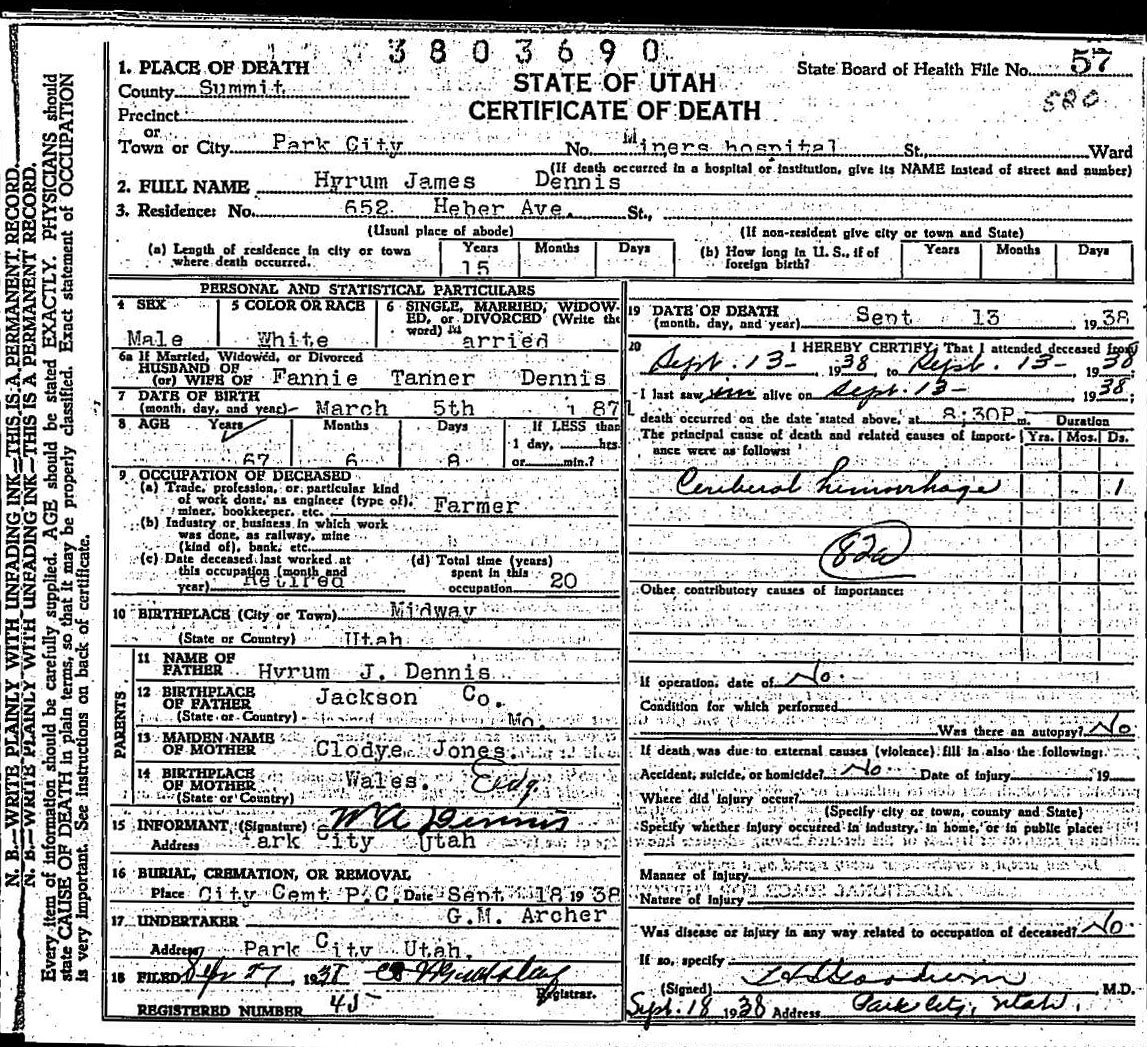 3803690
1. PLACE OF DEATH
STATE OF UTAH
CERTIFICATE OF DEATH
State Board of Health File No. 57
520
County Summit
Precinct
or
Town or City Park City No. Miners hospital St., Ward
(If death occurred in a hospital or institution, give its NAME instead of street and number)
2. FULL NAME Hyrum James Dennis
3. Residence: No. 652 Heber Ave. St.,
(Usual place of abode) (If non-resident give city or town and State)
(a) Length of residence in city or town where death occurred. Years 15 Months Days
(b) How long in U. S., if of foreign birth? Years Months Days
PERSONAL AND STATISTICAL PARTICULARS
4 SEX Male
5 COLOR OR RACE White
6 SINGLE, MARRIED, WIDOWED, or DIVORCED (Write the word) arried
6a If Married, Widowed, or Divorced
HUSBAND OF
(or) WIFE OF Fannie Tanner Dennis
7 DATE OF BIRTH
(month, day, and year) March 5th 187
8 AGE Years 67 Months 6 Days 8 If LESS than 1 day, hrs. or min.?
9 OCCUPATION OF DECEASED
(a) Trade, profession, or particular kind of work done, as engineer (type of), miner, bookkeeper, etc. Farmer
(b) Industry or business in which work was done, as railway, mine (kind of), bank, etc.
(c) Date deceased last worked at this occupation (month and year) Retired
(d) Total time (years) spent in this occupation 20
10 BIRTHPLACE (City or Town) Midway
(State or Country) Utah
PARENTS
11 NAME OF FATHER Hyrum J. Dennis
12 BIRTHPLACE OF FATHER Jackson Co.
(State or Country) Mo.
13 MAIDEN NAME OF MOTHER Clodye Jones.
14 BIRTHPLACE OF MOTHER Wales.
(State or Country)
15 INFORMANT (Signature) W A Dennis
Address Park City Utah
16 BURIAL, CREMATION, OR REMOVAL
Place City Cemt P.C. Date Sept 18 1938
17 UNDERTAKER G.M. Archer
Address Park City Utah.
18 FILED 27, 193
Registrar.
REGISTERED NUMBER 45
19 DATE OF DEATH
(month, day, and year) Sept 13 1938
20 I HEREBY CERTIFY, That I attended deceased from
Sept. 13- 1938 to Sept. 13- 1938;
I last saw im alive on Sept. 13- 1938;
death occurred on the date stated above, at 8;30P m. Duration
The principal cause of death and related causes of importance were as follows: Yrs. Mos. Ds.
Cerebral hemorrhage 1
82a
Other contributory causes of importance:
If operation, date of No.
Condition for which performed
Was there an autopsy? No
If death was due to external causes (violence) fill in also the following:
Accident, suicide, or homicide? No Date of injury 19
Where did injury occur?
(Specify city or town, county and State)
Specify whether injury occurred in industry, in home, or in public place:
Manner of Injury
Nature of Injury
Was disease or injury in any way related to occupation of deceased? No.
If so, specify
(Signed) M.D.
Sept. 18 1938 Address Park City, Utah.
N. B.—WRITE PLAINLY WITH UNFADING INK—THIS IS A PERMANENT RECORD.
N. B.—WRITE PLAINLY WITH UNFADING INK—THIS IS A PERMANENT RECORD.
Every item of information should be carefully supplied. AGE should be stated EXACTLY. PHYSICIANS should
state CAUSE OF DEATH in plain terms, so that it may be properly classified. Exact statement of OCCUPATION
is very important. See instructions on back of certificate.